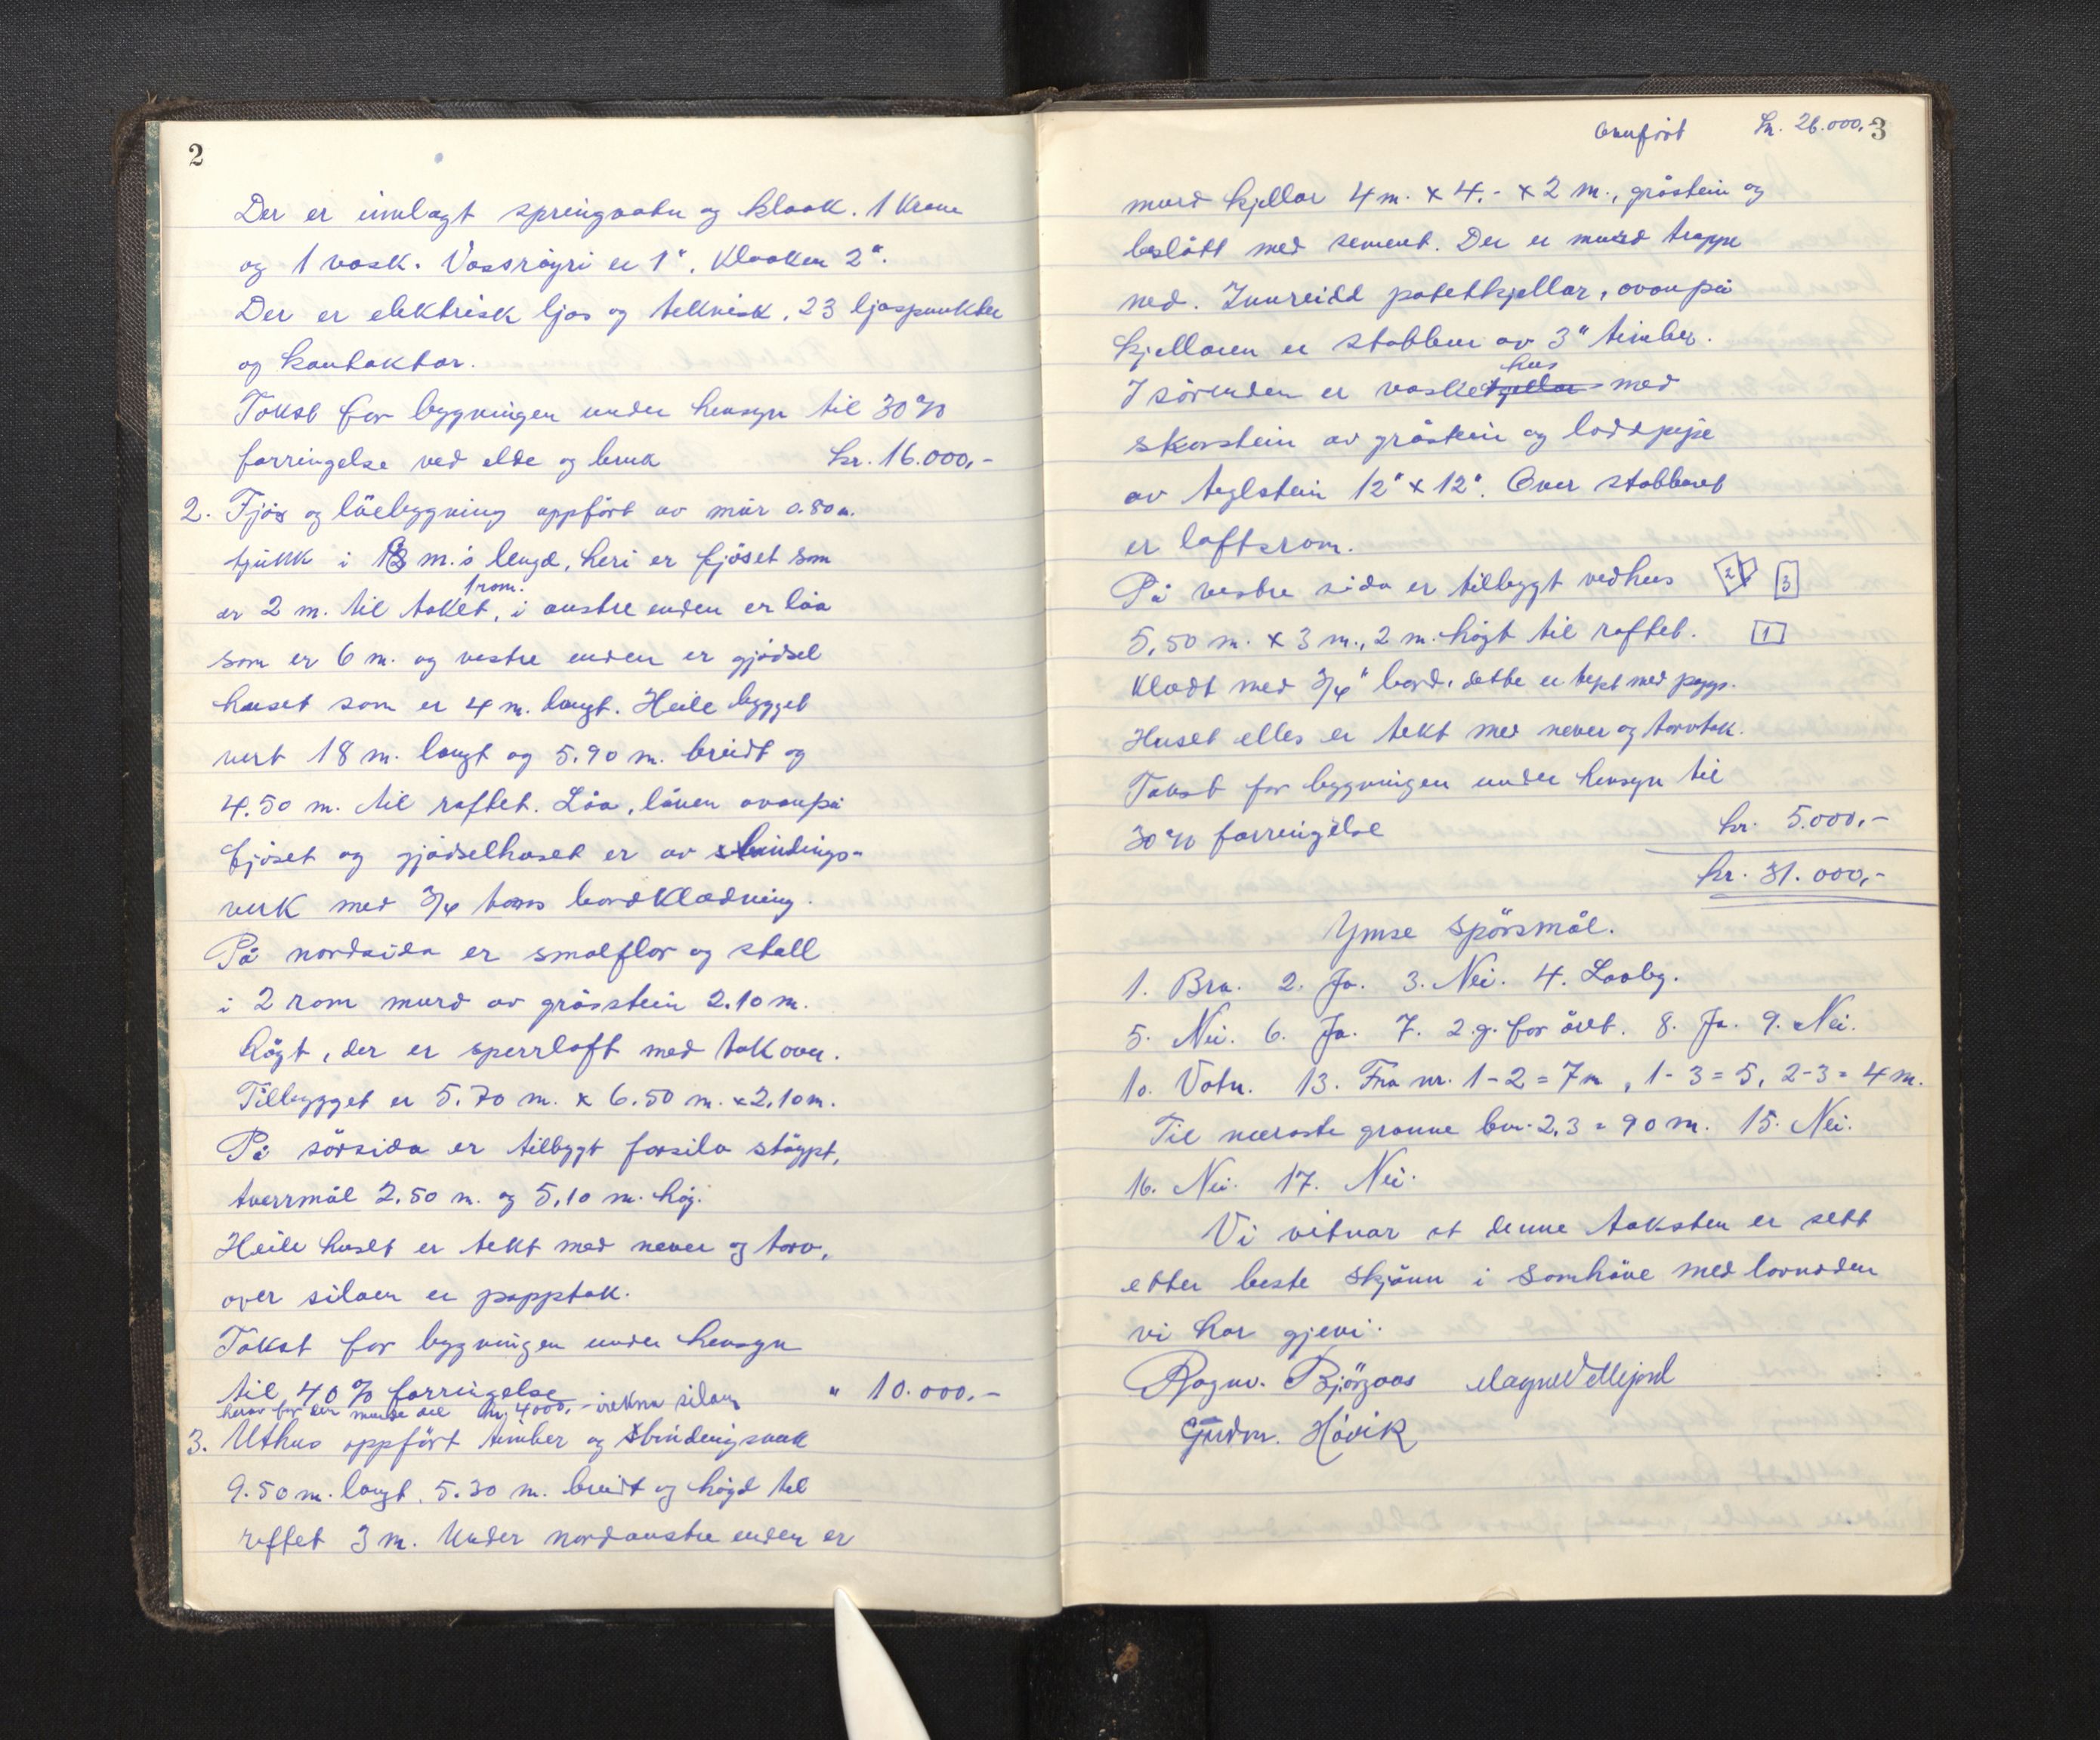 2
Der er innlagt springvatn og kloak. 1 Krane
og 1 vask. Vassröyri er 1". Kloaken 2".
Der er elektrisk ljos og teknisk. 23 ljospunkter
og kontaktar.
Takst for bygningen under hensyn til 30%
forringelse ved elde og bruk kr. 16.000,-
2. Fjös og löebygning oppfört av mur 0.80 m.
tjukk i 18 m.s lengd, heri er fjöset som
1 rom.
er 2 m. til taket, i austre enden er löa
som er 6 m. og vestre enden er gjödsel
huset som er 4 m. langt. Heile bygget
vert 18 m. langt og 5.90 m. breidt og
4.50 m. til raftet. Löa, låven ovanpå
fjöset og gjödselhuset er av bindings-
verk med 3/4 toms bordklædning.
På nordsida er smalflor og stall
i 2 rom murd av gråstein 2.10 m.
högt, der er sperrloft med tak over.
Tilbygget er 5.70 m. x 6.50 m. x 2.10 m.
På sörsida er tilbygt forsilo stöypt,
tverrmål 2.50 m. og 5,10 m. hög.
Heile huset er tekt med never og torv,
over siloen er papptak.
Takst for bygningen under hensyn
til 40% forringelse " 10.000,-
herav for den murde del kr. 4000,- irekna siloen
3. Uthus oppfört timber og bindingsverk
9.50 m. langt. 5.30 m. breidt og högd til
raftet 3 m. Under nordaustre enden er
Omfört kr. 26.000,- 3
murd kjellar 4 m. x 4.- x 2 m., gråstein og
beslått med sement. Der er murd trappe
ned. Innreidd potetkjellar, ovanpå
kjellaren er stabbur av 3" timber.
hus
I sörenden er vaskekjellar med
skorstein av gråstein og loddpipe
av teglstein 12" x 12". Over stabburet
er loftsrom.
På vestre sida er tilbygt vedhus 2 3
5,50 m. x 3 m., 2 m. högt til raftet. 1
Klædt med 3/4" bord, dette er tekt med papp.
Huset elles er tekt med never og torvtak.
Takst for bygningen under hensyn til
30% forringelse kr. 5.000,-
kr. 31.000,-
Ymse spörsmål.
1. Bra. 2. Ja. 3. Nei. 4. Lauby.
5. Nei. 6. Ja. 7. 2.g. for året. 8. Ja. 9. Nei.
10. Vatn. 13. Fra nr. 1-2 = 7 m, 1-3 = 5, 2-3 = 4 m.
Til næraste granne bnr. 2,3 = 90 m. 15. Nei.
16. Nei. 17. Nei.
Vi vitnar at denne taksten er sett
etter beste skjönn i samhöve med lovnaden
vi har gjevi.
Ragnv. Björgaas Magne Mjell
Gudm. Hövik